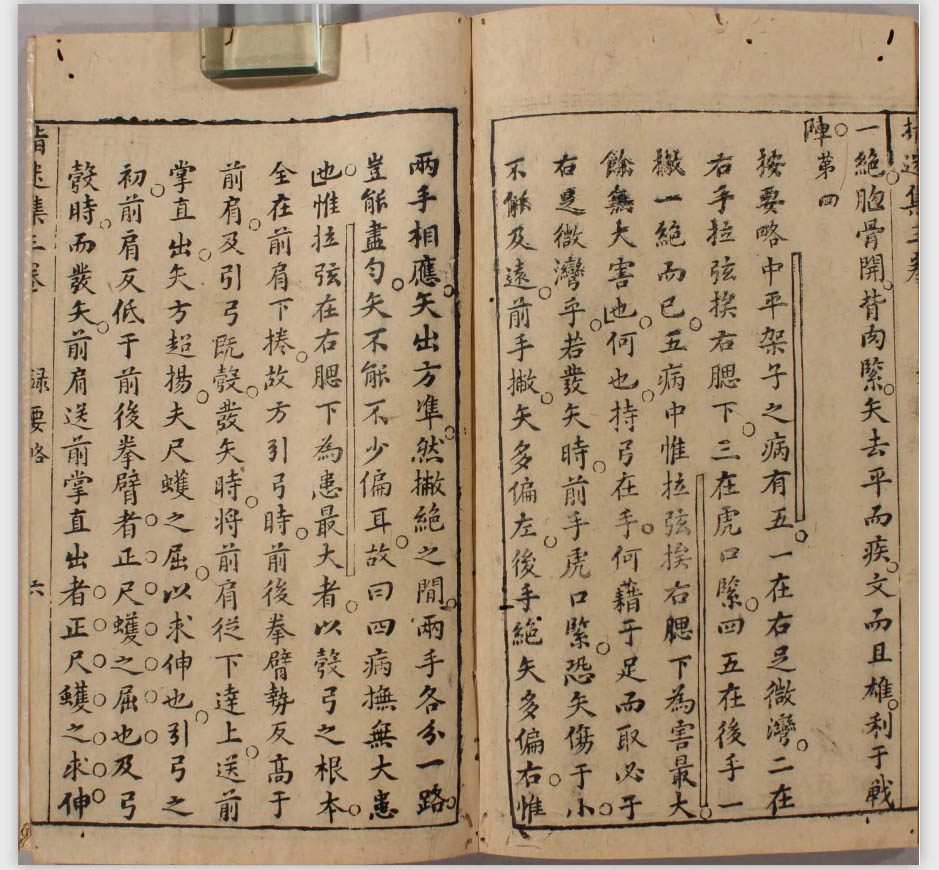 一絶胷骨開背肉緊矢去平而疾文而且雄利于戦
陣第四
按要略中平架子之病有五一在右足微灣二在
右手拉弦挨右腮下三在虎口緊四五在後手一
撇一絶而已五病中惟拉弦挨右腮下為害最大
餘無大害也何也持弓在手何藉于足而取必于
右足微灣乎若發矢時前手虎口緊恐矢傷于小
不能及遠前手撇矢多偏左後手絶矢多偏右惟
兩手相應矢出方準然撇絶之間兩手各分一路
豈能盡勻矢不能不少偏耳故曰四病撫無大患
也惟拉弦在右腮下為患最大者以彀弓之根本
全在前肩下捲故方引弓時前後拳臂勢反高于
前肩及引弓既彀發矢時將前肩從下達上送前
掌直出矢方超揚夫尺蠖之屈以求伸也引弓之
初前肩反低于前後拳臂者正尺蠖之屈也及弓
彀時而發矢前肩送前掌直出者正尺蠖之求伸
集三卷
録要略
六